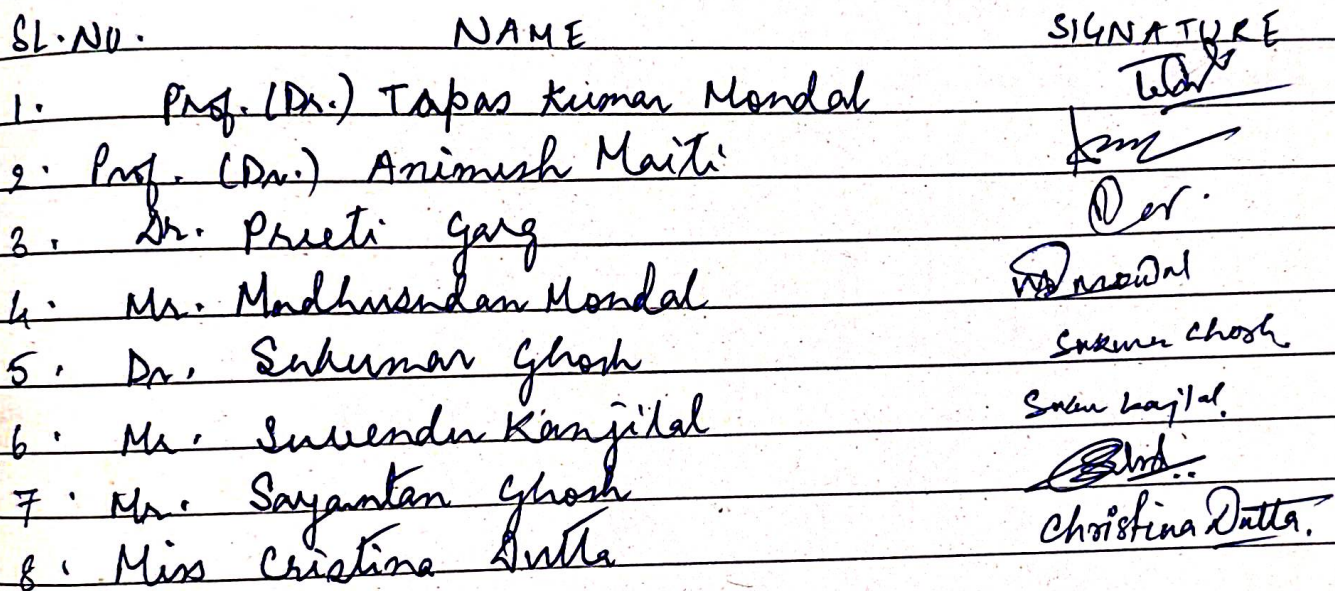 SL.NO. NAME SIGNATURE
1. Prof. (Dr.) Tapas Kumar Mondal
2. Prof. (Dr.) Animesh Maiti
3. Dr. Preeti Garg
4. Mr. Madhusudan Mondal
5. Dr. Sukumar Ghosh Sukumar Ghosh
6. Mr. Suvendu Kanjilal
7. Mr. Sayantan Ghosh
8. Miss Cristina Dutta Christina Dutta.